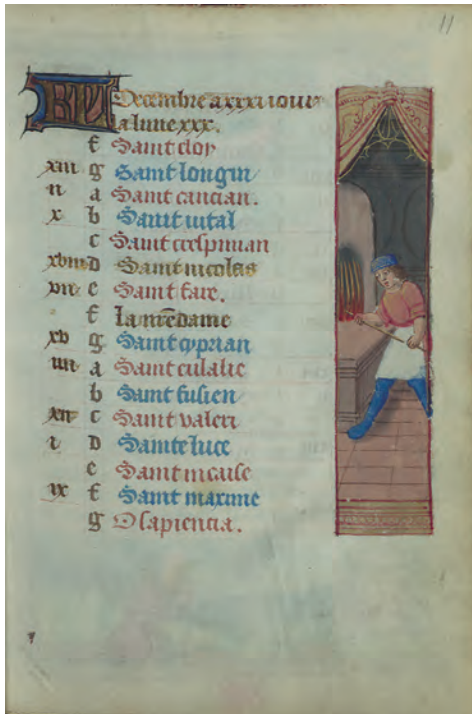 11
KL Decembre a xxxi iour
la lune xxx.
f Saint eloy
xiii g Saint longin
ii a Saint cancian.
x b Saint vital
c Saint crespinian
xviii D Saint nicolas
vii e Saint fare.
f La nrē dame
xv g Saint cyprian
iiii a Saint eulalie
b Saint fusien
xii c Saint valeri
i D Sainte luce
e Saint nicaise
ix f Saint maxime
g O sapiencia.